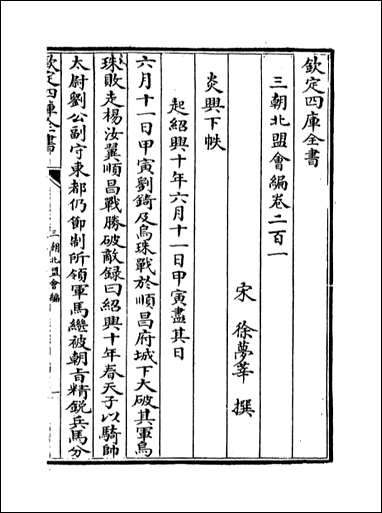 欽定四庫全書
三朝北盟會編卷二百一
宋 徐夢莘 撰
炎興下帙
起紹興十年六月十一日甲寅盡其日
六月十一日甲寅劉錡及烏珠戰於順昌府城下大破其軍烏
珠敗走楊汝翼順昌戰勝破敵錄曰紹興十年春天子以騎帥
太尉劉公副守東都仍節制所領軍馬繼被朝旨精鋭兵馬分
欽定四庫全書
三朝北盟會編